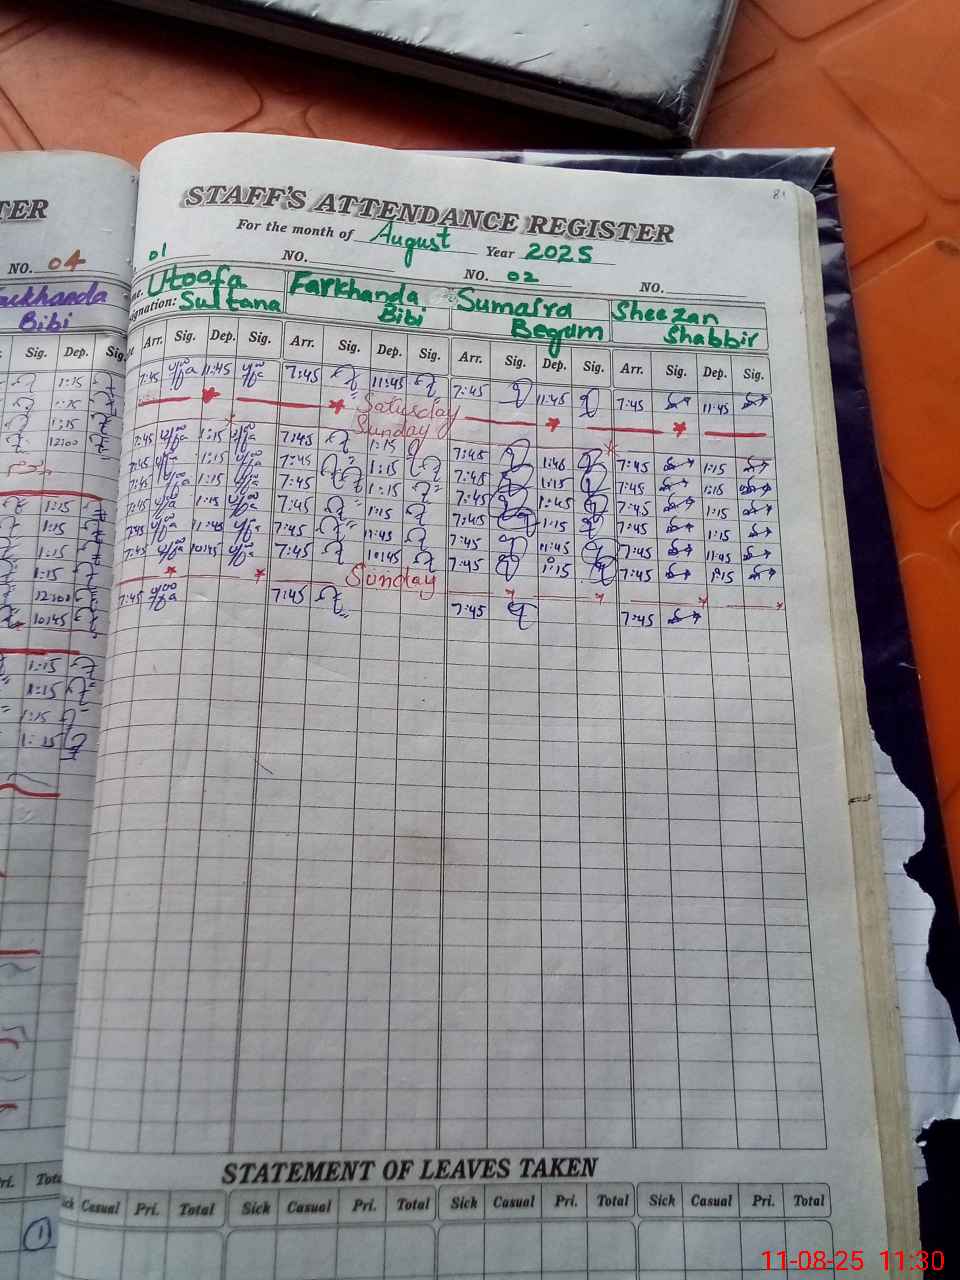 TER
NO. 04
Farkhanda
Bibi
Sig. Dep. Sig.
1:15
1:15
1:15
12:00
1:15
1:15
1:15
1:15
12:00
10:45
1:15
1:15
1:15
1:15
ri. Tota
1
81
STAFF'S ATTENDANCE REGISTER
For the month of August Year 2025
01 NO. NO. 02 NO.
me. Utoofa Farkhanda Sumaira Sheezan
signation: Sultana Bibi Begum Shabbir
Arr. Sig. Dep. Sig. Arr. Sig. Dep. Sig. Arr. Sig. Dep. Sig. Arr. Sig. Dep. Sig.
7:45 11:45 7:45 11:45 7:45 11:45 7:45 11:45
Saturday
Sunday
7:45 1:15 7:45 1:15 7:45 7:45 1:15
7:45 1:15 7:45 1:15 7:45 1:15 7:45 1:15
7:45 1:15 7:45 1:15 7:45 1:45 7:45 1:15
7:45 1:15 7:45 1:15 7:45 1:15 7:45 1:15
7:45 11:45 7:45 11:45 7:45 11:45 7:45 11:45
7:45 10:45 7:45 10:45 7:45 1:15 7:45 1:15
Sunday
7:45 7:45 7:45 7:45
STATEMENT OF LEAVES TAKEN
ick Casual Pri. Total Sick Casual Pri. Total Sick Casual Pri. Total Sick Casual Pri. Total
11-08-25 11:30